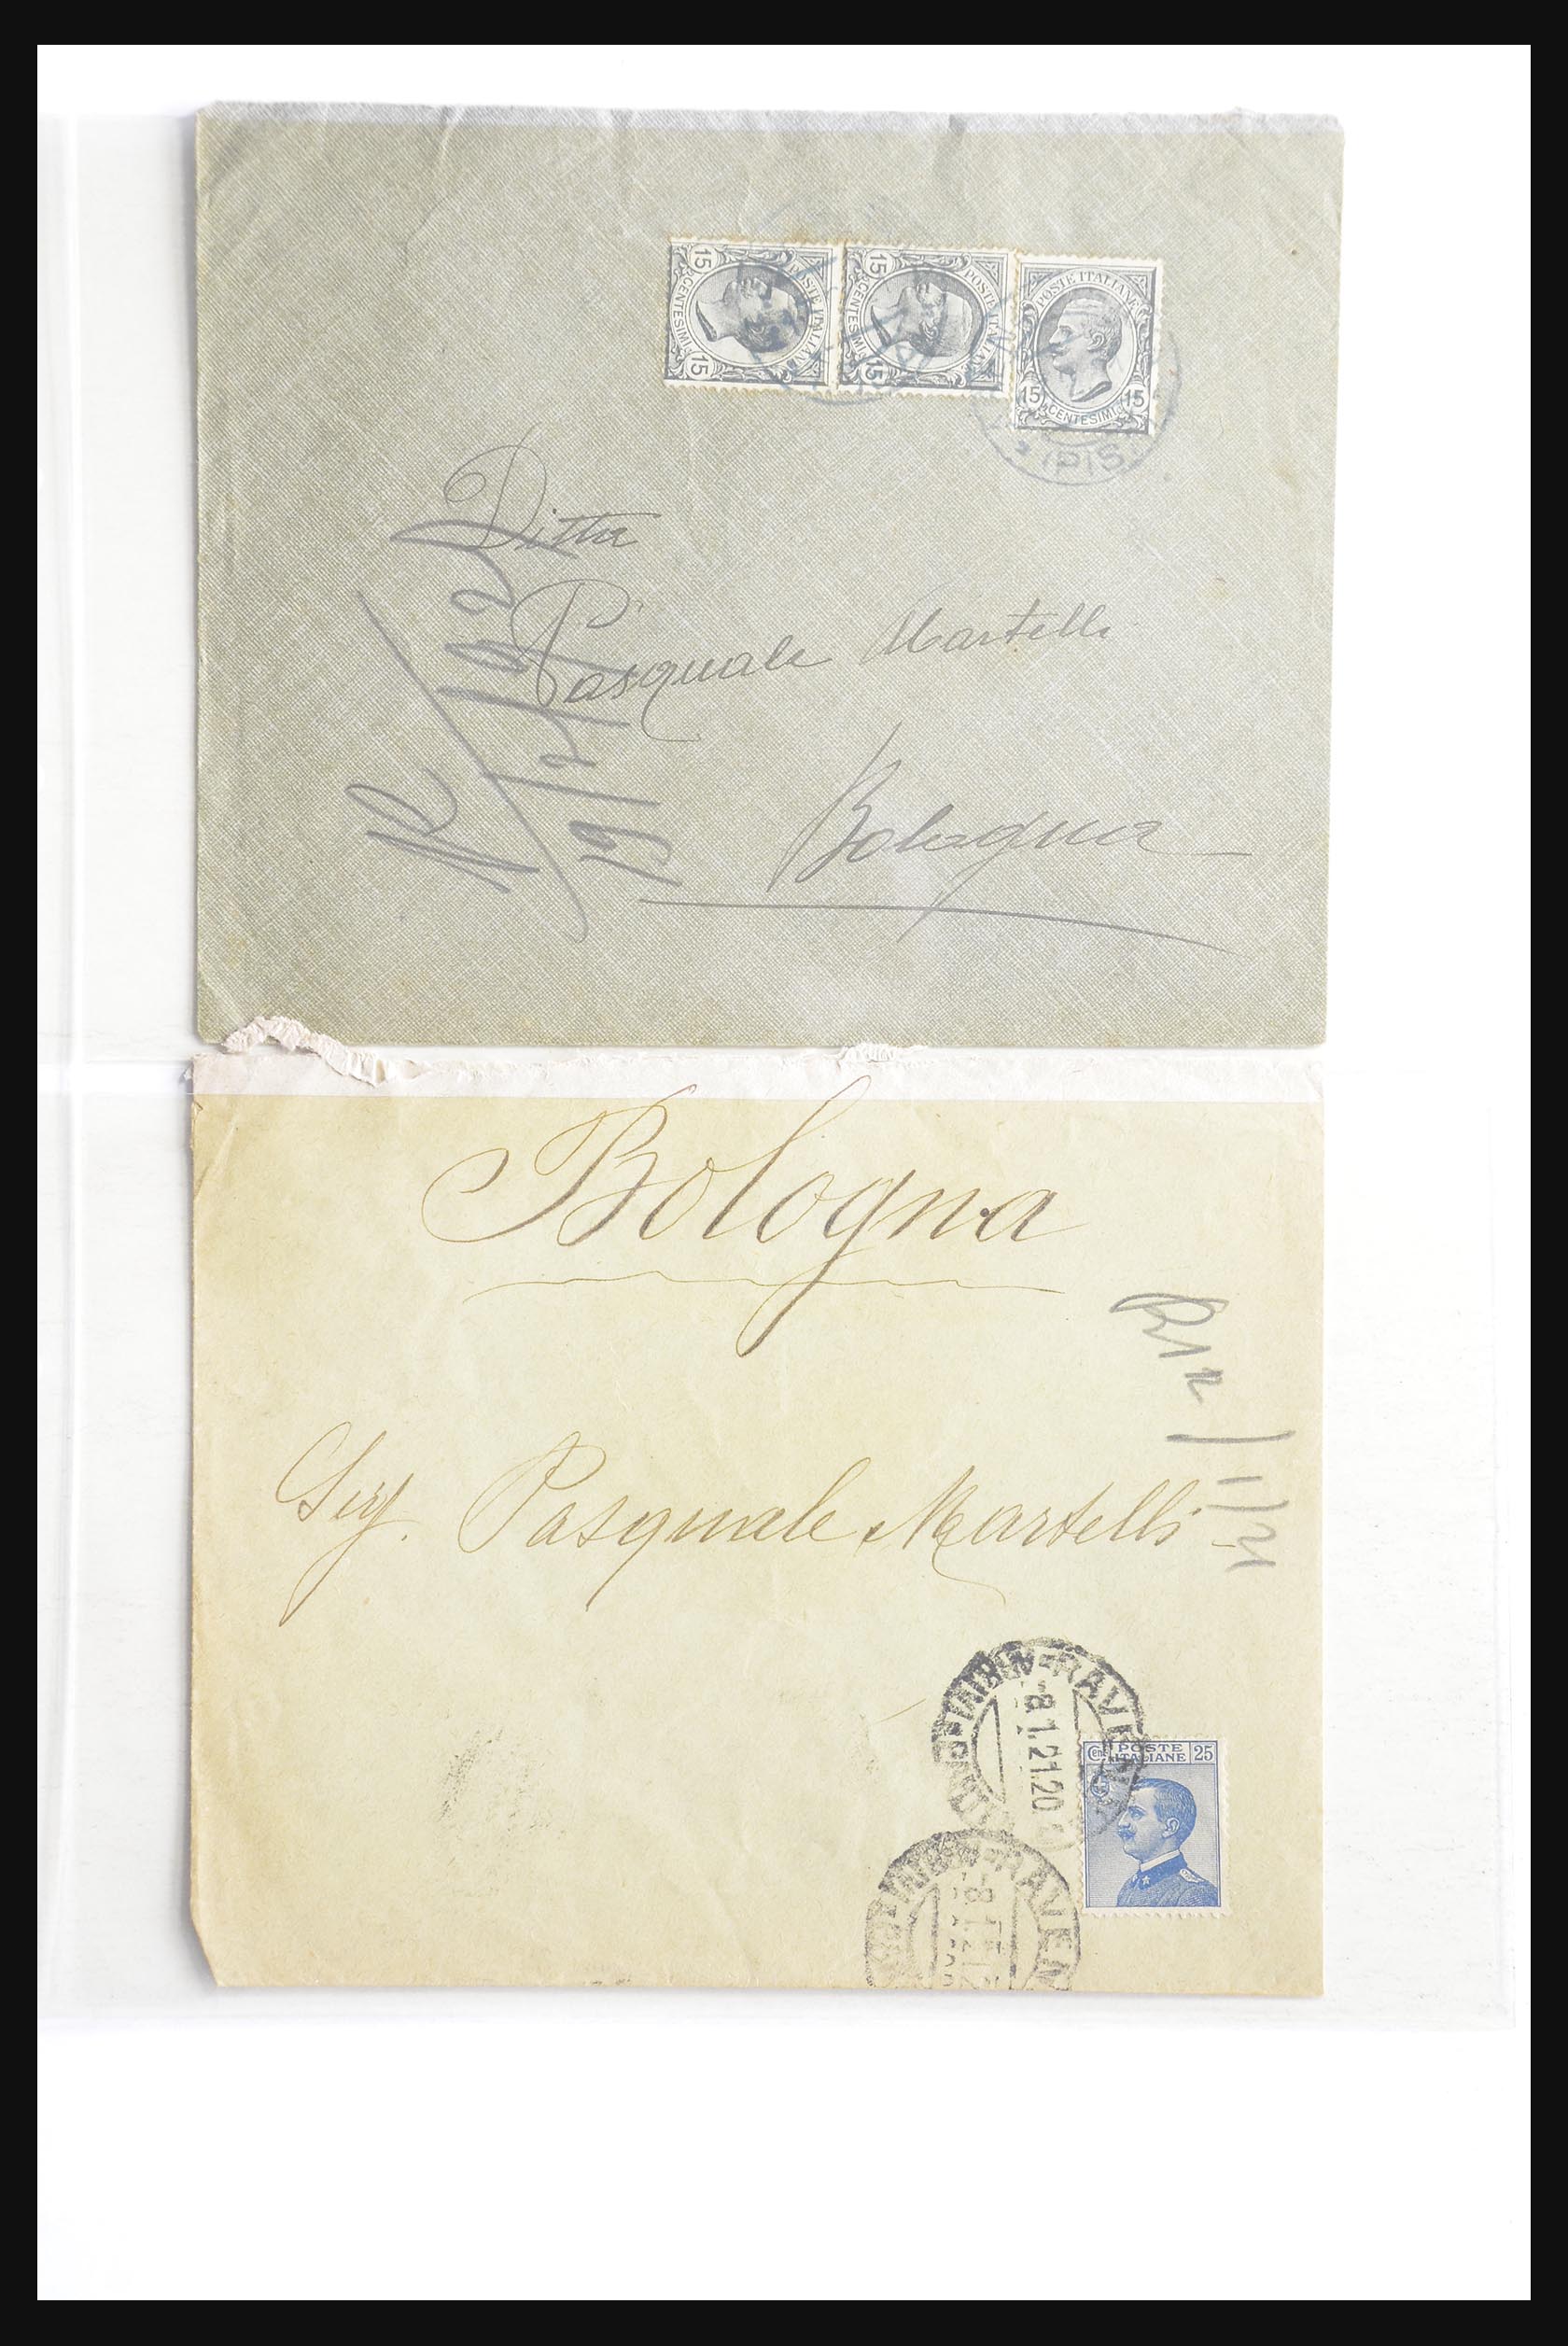 POSTE ITALIANE
15 CENTESIMI 15
POSTE ITALIANE
15 CENTESIMI 15
POSTE ITALIANE
15 CENTESIMI 15
Ditta
Pasquale Martelli
Bologna
Bologna
Sig. Pasquale Martelli
-8.1.21.20
RAVENNA
Cent POSTE ITALIANE 25
-8.1.21
RAVEN